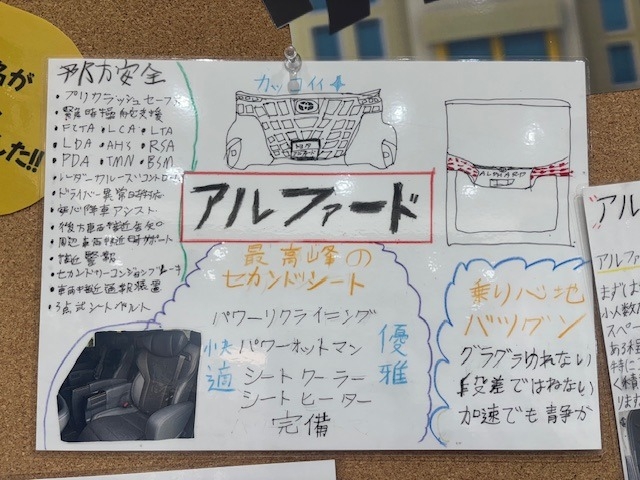 予防安全
・プリクラッシュセーフ
・緊急時操舵支援
・FCTA・LCA・LTA
・LDA・AHS・RSA
・PDA・TMN・BSM
・レーダークルーズコントロール
・ドライバー異常時対応
・安心降車アシスト
・後方車両接近告知
・周辺車両接近時サポート
・接近警報
・セカンダリーコリジョンブレーキ
・車両接近通報装置
・3点式シートベルト
カッコイイ
アルファード
ALPHARD
最高峰の
セカンドシート
パワーリクライニング
パワーオットマン
シートクーラー
シートヒーター
完備
快適
優雅
乗り心地
バツグン
グラグラゆれない
段差ではねない
加速でも静か
名が
した!!
アル
アルファ
まずは
小人数
スペー
ある
特に
く精
ります